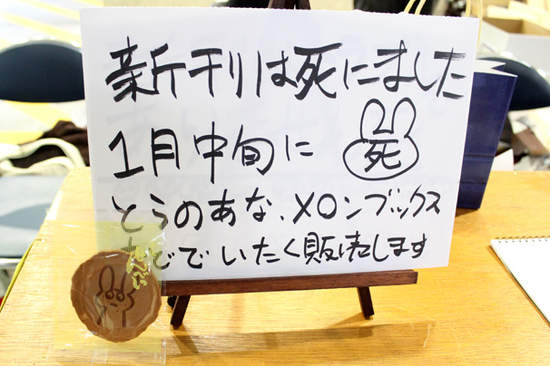 新刊は死にました
1月中旬に
死
とらのあな、メロンブックス
などでいたく販売します